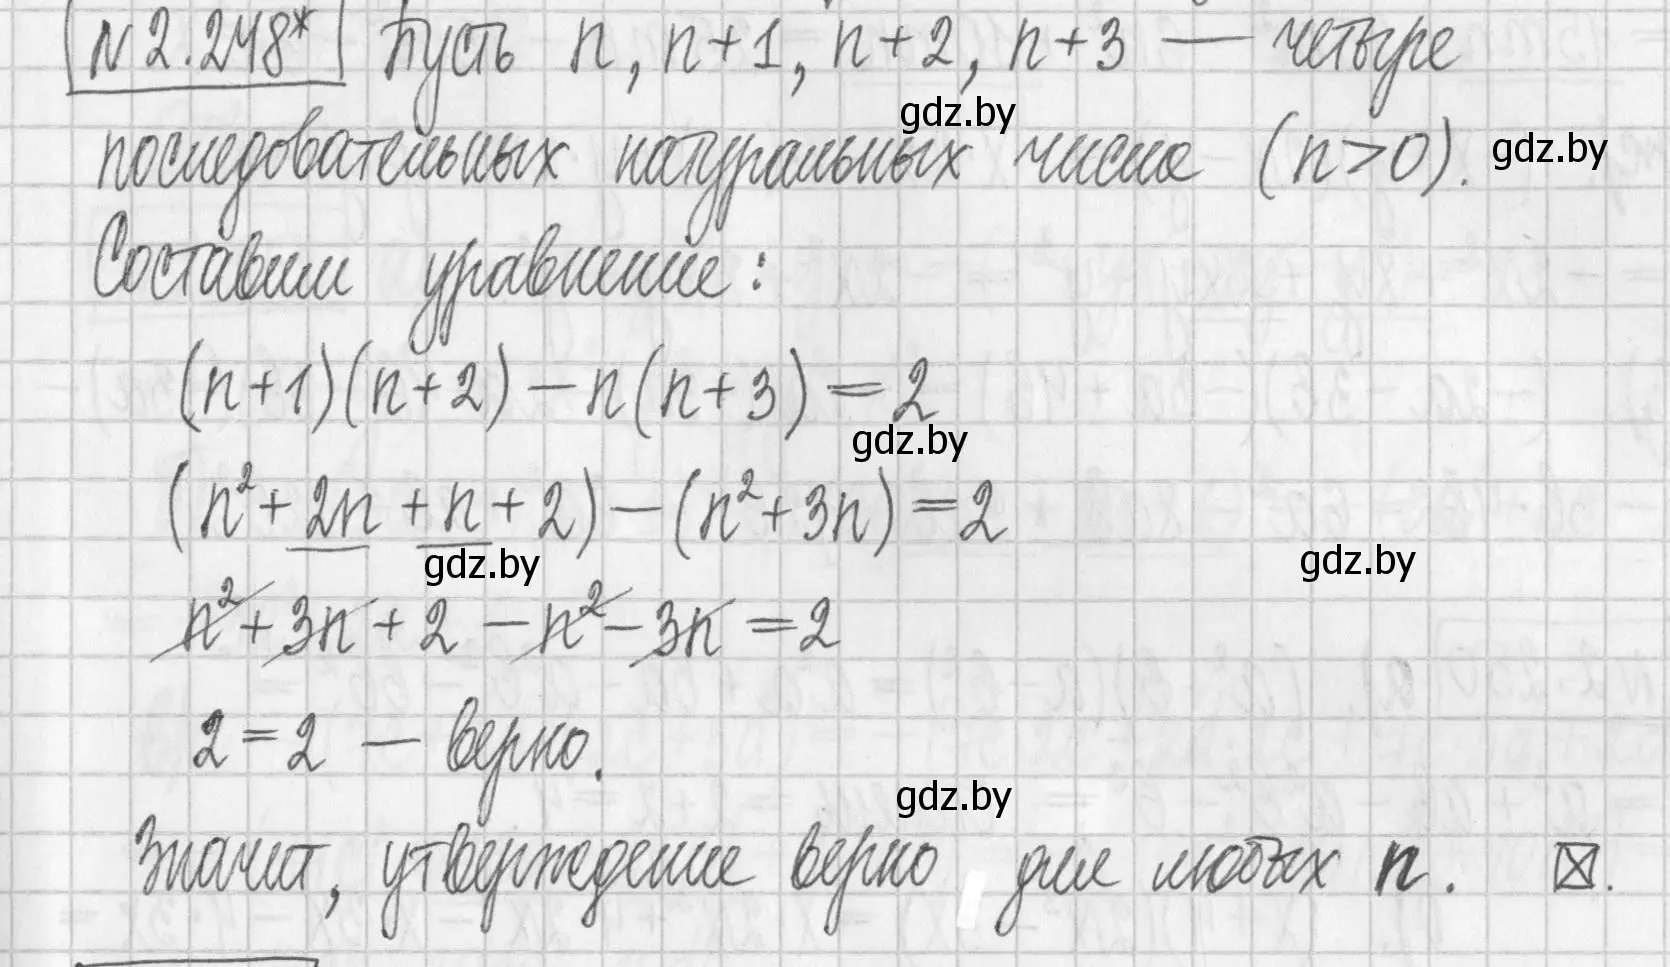 N 2.248* Пусть n, n+1, n+2, n+3 — четыре
gdz.by
последовательных натуральных числа (n>0). gdz.by
Составим уравнение:
(n+1)(n+2) − n(n+3) = 2
gdz.by
(n² + 2n + n + 2) − (n² + 3n) = 2
gdz.by gdz.by
n² + 3n + 2 − n² − 3n = 2
2 = 2 — верно.
gdz.by
Значит, утверждение верно для любых n. ☒.